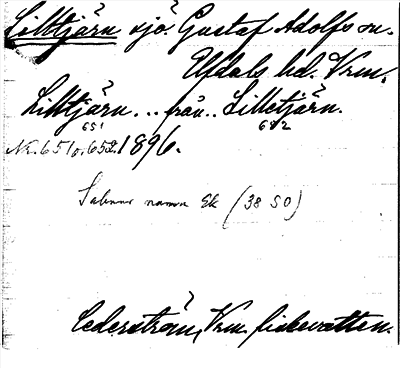 Lilltjärn sjö. Gustaf Adolfs sn.
Elfdals hd. Vrm.
Lilltjärn... från.. Lilletjärn.
651 652
Nr. 651 o. 652. 1896.
Saknar namn Ek (38 SO)
Cederström, Vrm. fiskevatten.